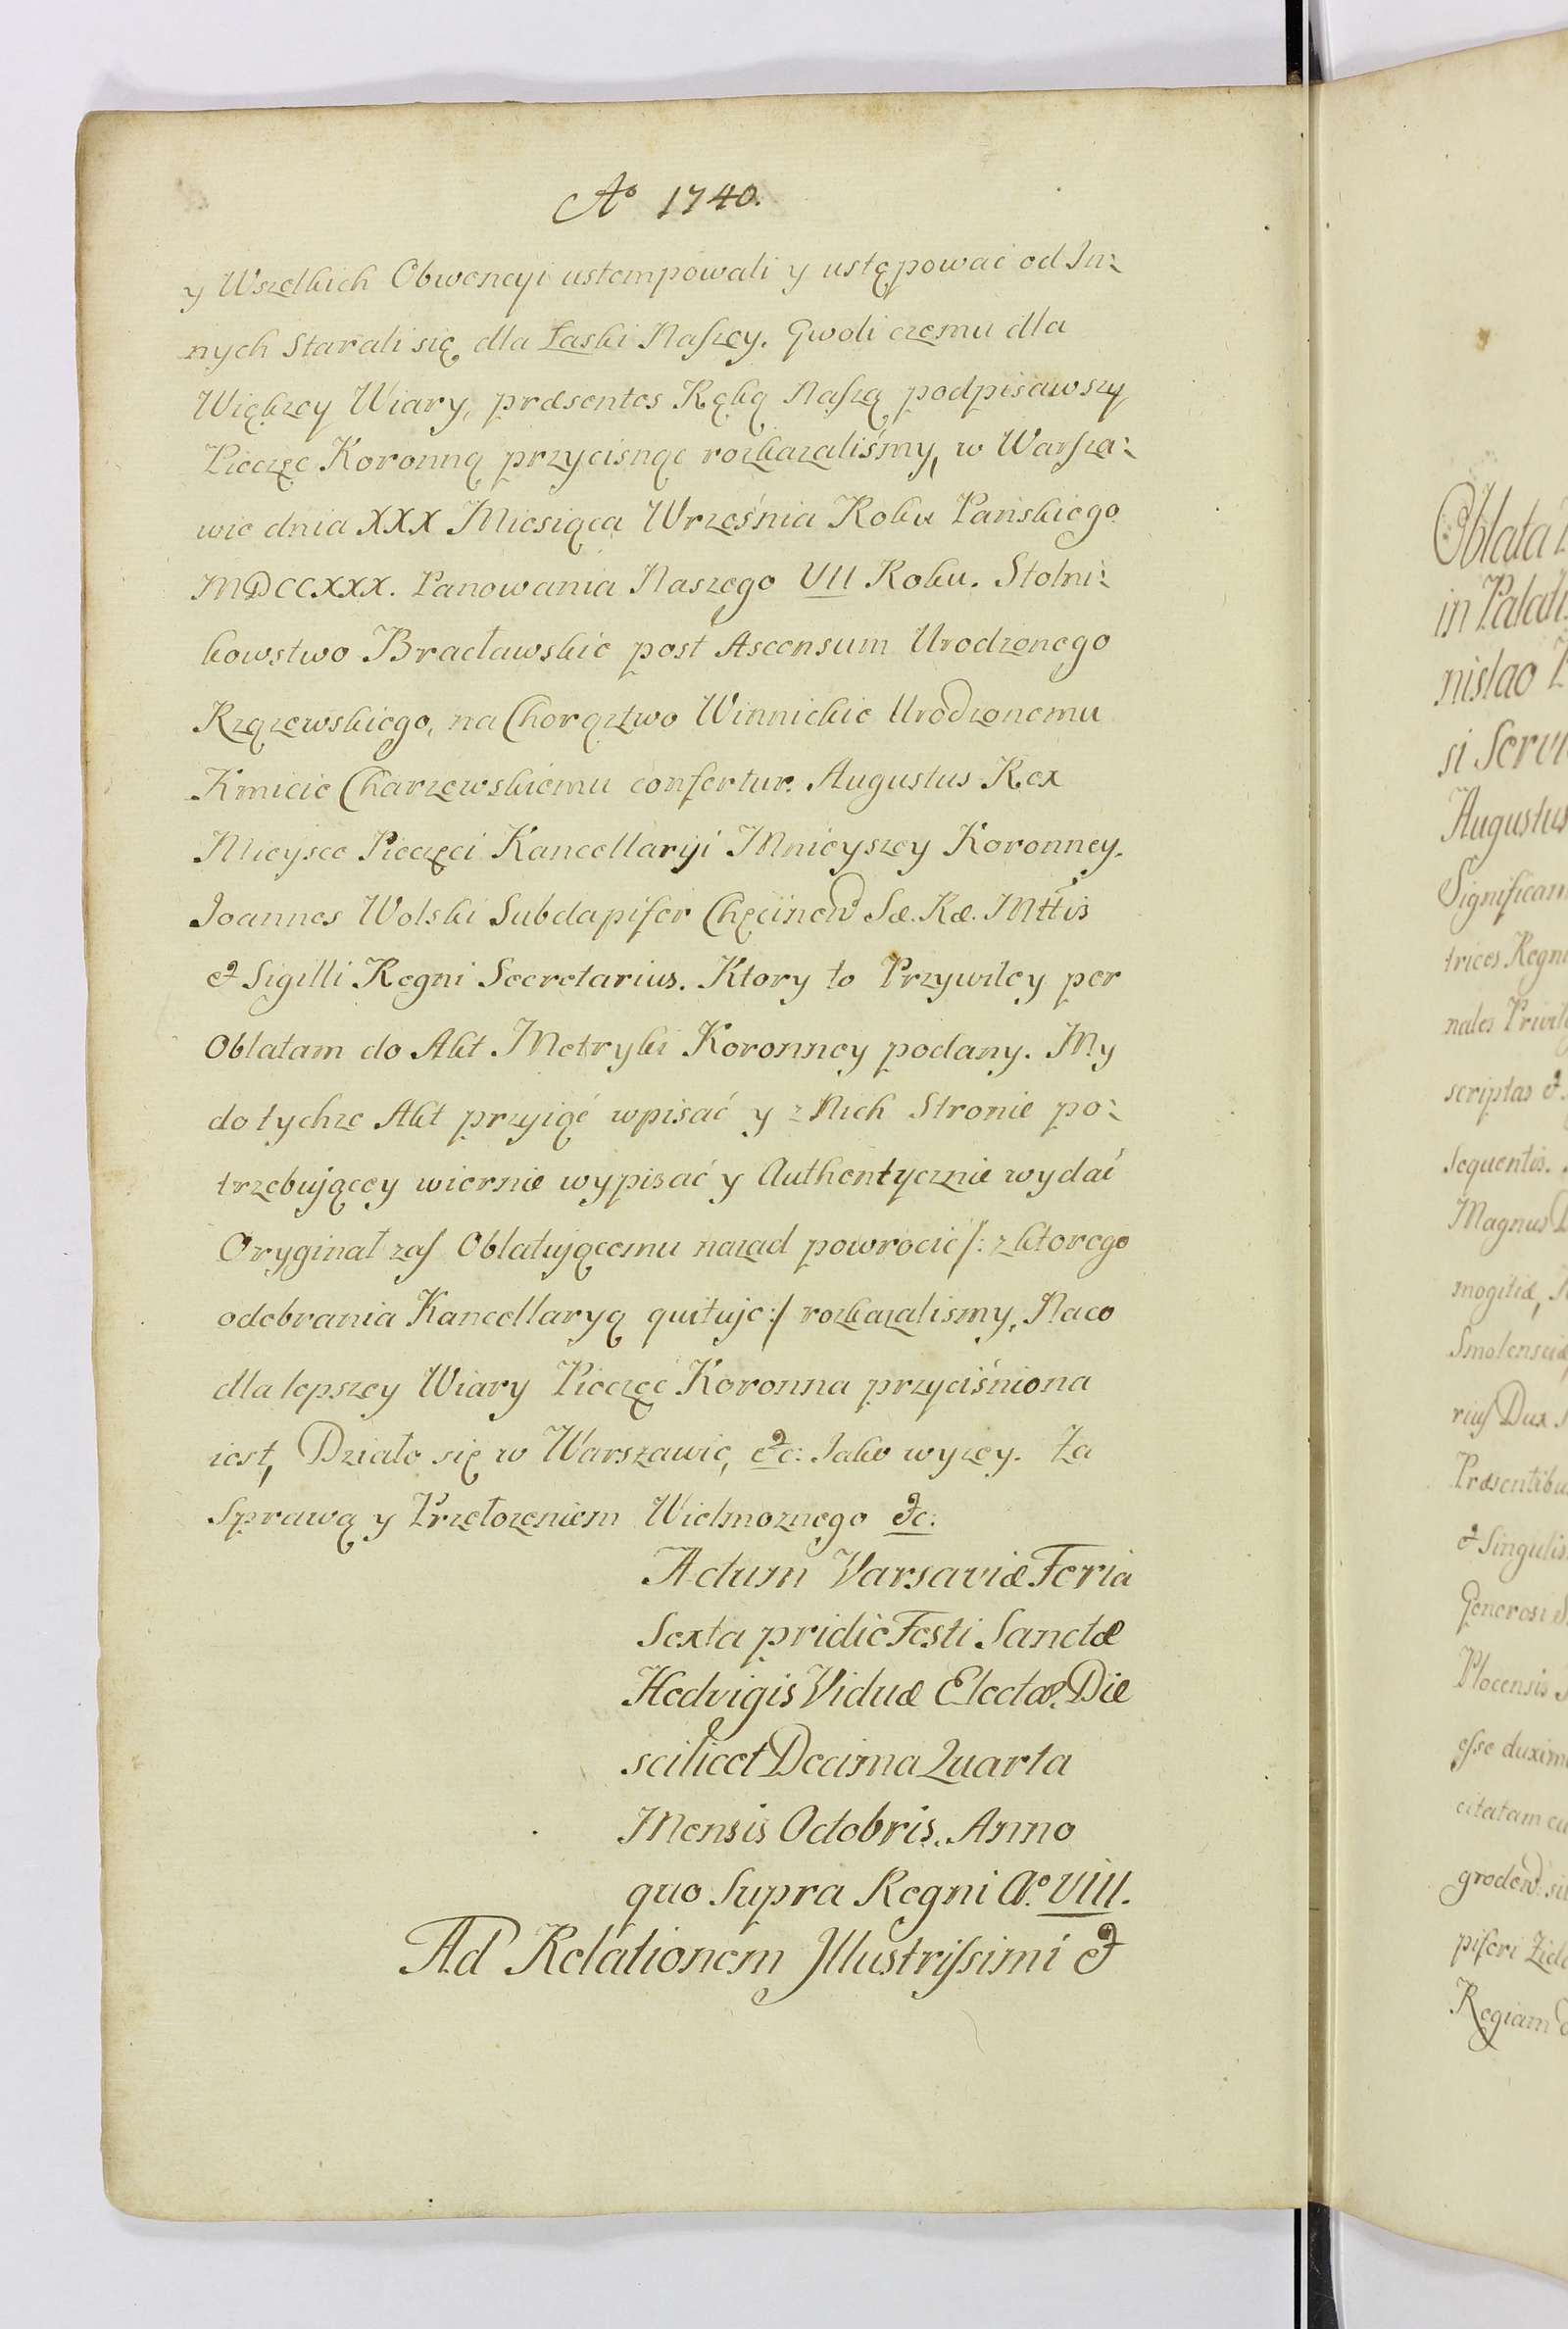 Aº 1740.
y Wszelkich Obwencyi ustempowali y ustępować od In:
nych Starali się, dla Łaski Naſzey. Gwoli czemu dla
Więkzey Wiary, præsentes Ręką Naſzą podpisawszy
Pieczęc Koronną przycisnąc rozkazaliśmy, w Warſza:
wie dnia XXX Miesiąca Września Roku Pańskiego
MDCCXXX. Panowania Naszego VII Roku. Stolni:
kowstwo Bracławskie post Ascensum Urodzonego
Rzązewskiego, na Chorąztwo Winnickie Urodzonemu
Kmicie Charzewskiemu confertur. Augustus Rex
Mieysce Pieczęci Kancellaryi Mnieyszey Koronney.
Joannes Wolski Subdapifer Chęcinen Sæ. Ræ. Mttis
& Sigilli Regni Secretarius. Ktory to Przywiley per
Oblatam do Akt Metryki Koronney podany. My
do tychze Akt przyiąć wpisać y z Nich Stronie po:
trzebuiącey wiernie wypisać y Authentycznie wydać
Oryginał zaſ Oblatuiącemu nazad powrocić /: z ktorego
odebrania Kancellaryą quituje :/ rozkazalismy, Na co
dla lepszey Wiary Pieczęć Koronna przyciśniona
iest, Działo się w Warszawie, &c: Jako wyzey. Za
Sprawą y Przełozeniem Wielmoznego &c:
Actum Varsaviæ Feria
Sexta pridie Festi Sanctæ
Hedvigis Viduæ Electæ. Die
scilicet Decima Quarta
Mensis Octobris. Anno
quo Supra Regni Aº. VIII.
Ad Relationem Jllustriſsimi &
Oblata
in Palati
nislao
si Servi
Augustus
Significam
trices Regni
nales Privile
scriptas &
sequentis.
Magnus D
mogitiæ,
Smolensciæ
riuſ Dux
Præsentibu
& Singulis
Generosi
Plocensis
eſse duxim
citatam cu
groden
piferi Zida
Regiam